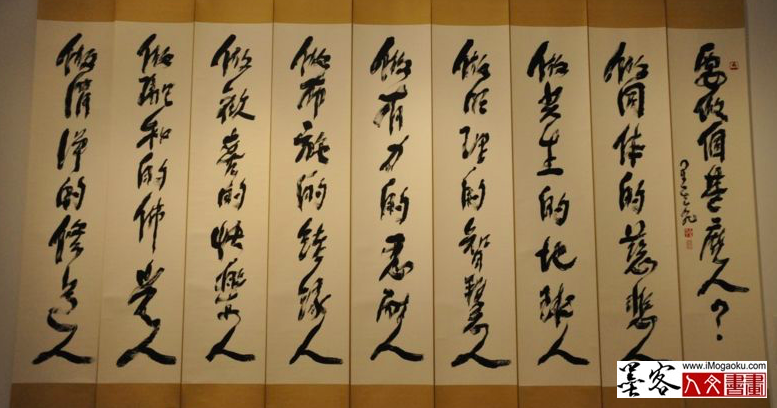 要做個甚麼人？
做同体的慈悲人
做共生的地球人
做明理的智慧人
做有力的忍耐人
做布施的結緣人
做歡喜的快樂人
做融和的佛光人
做清淨的修道人
墨客
www.iMogaoku.com
人文書畫